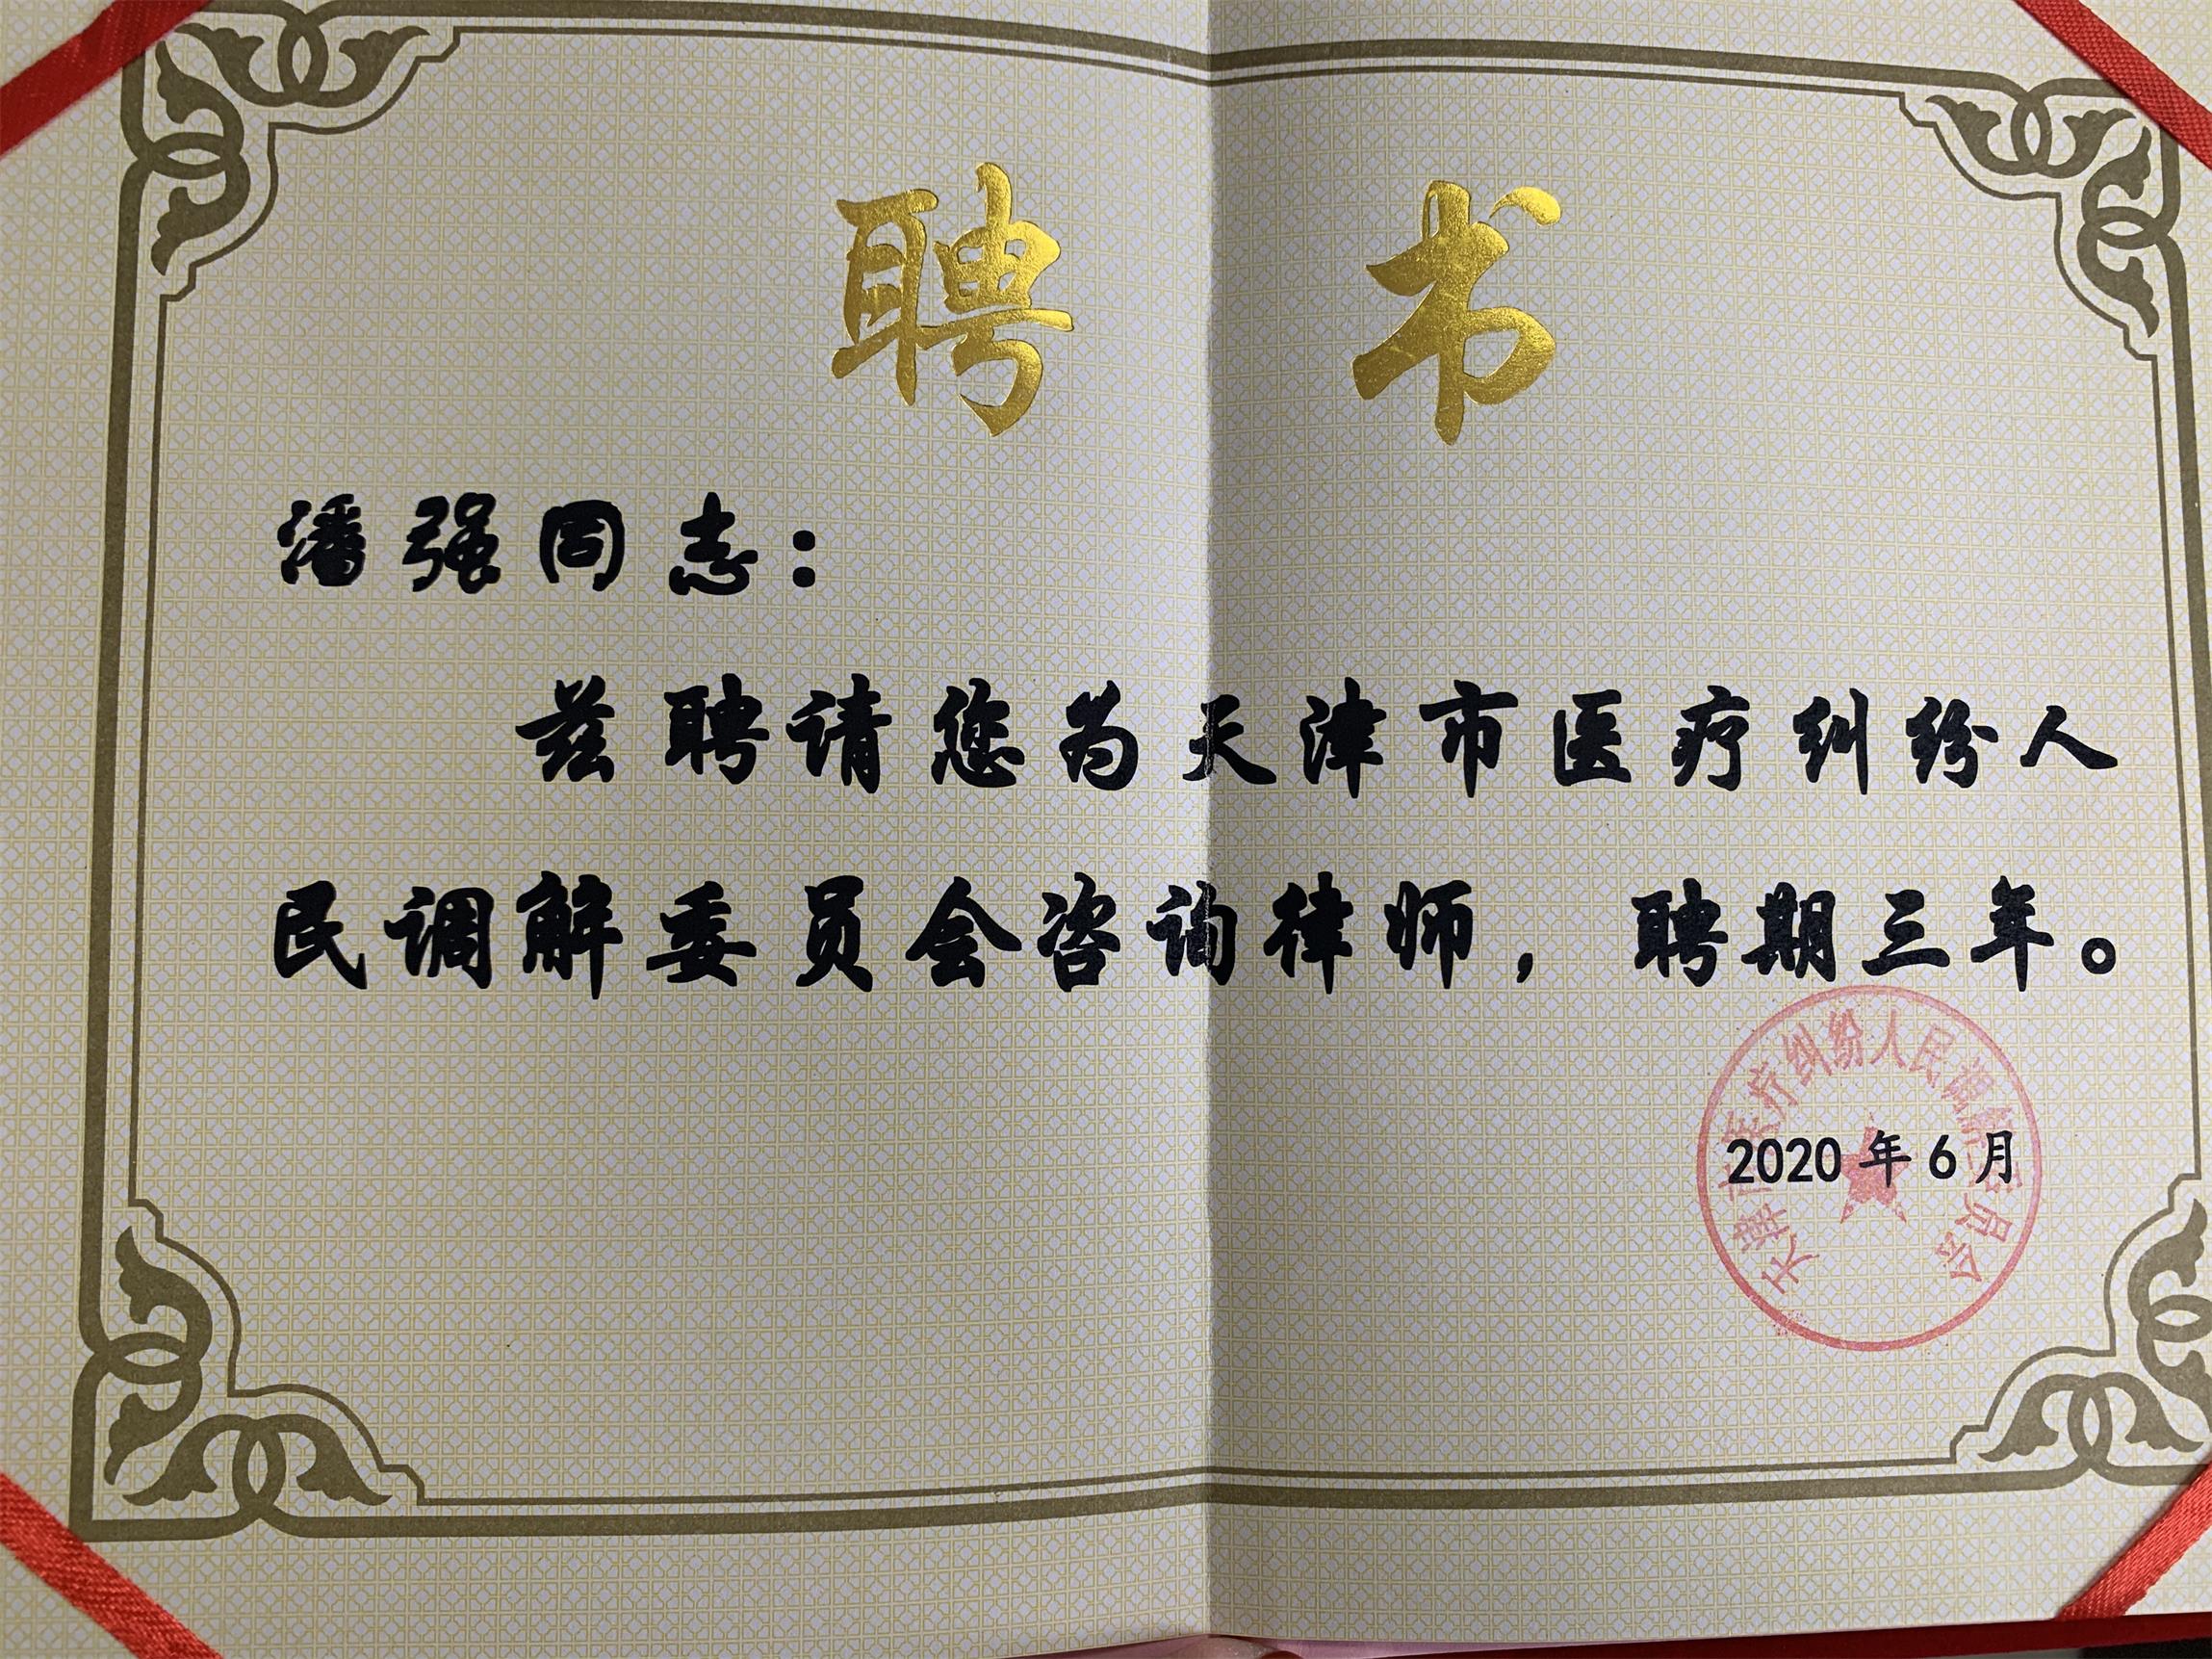 聘 书
潘强同志：
兹聘请您为天津市医疗纠纷人
民调解委员会咨询律师，聘期三年。
天津市医疗纠纷人民调解委员会
2020 年 6 月